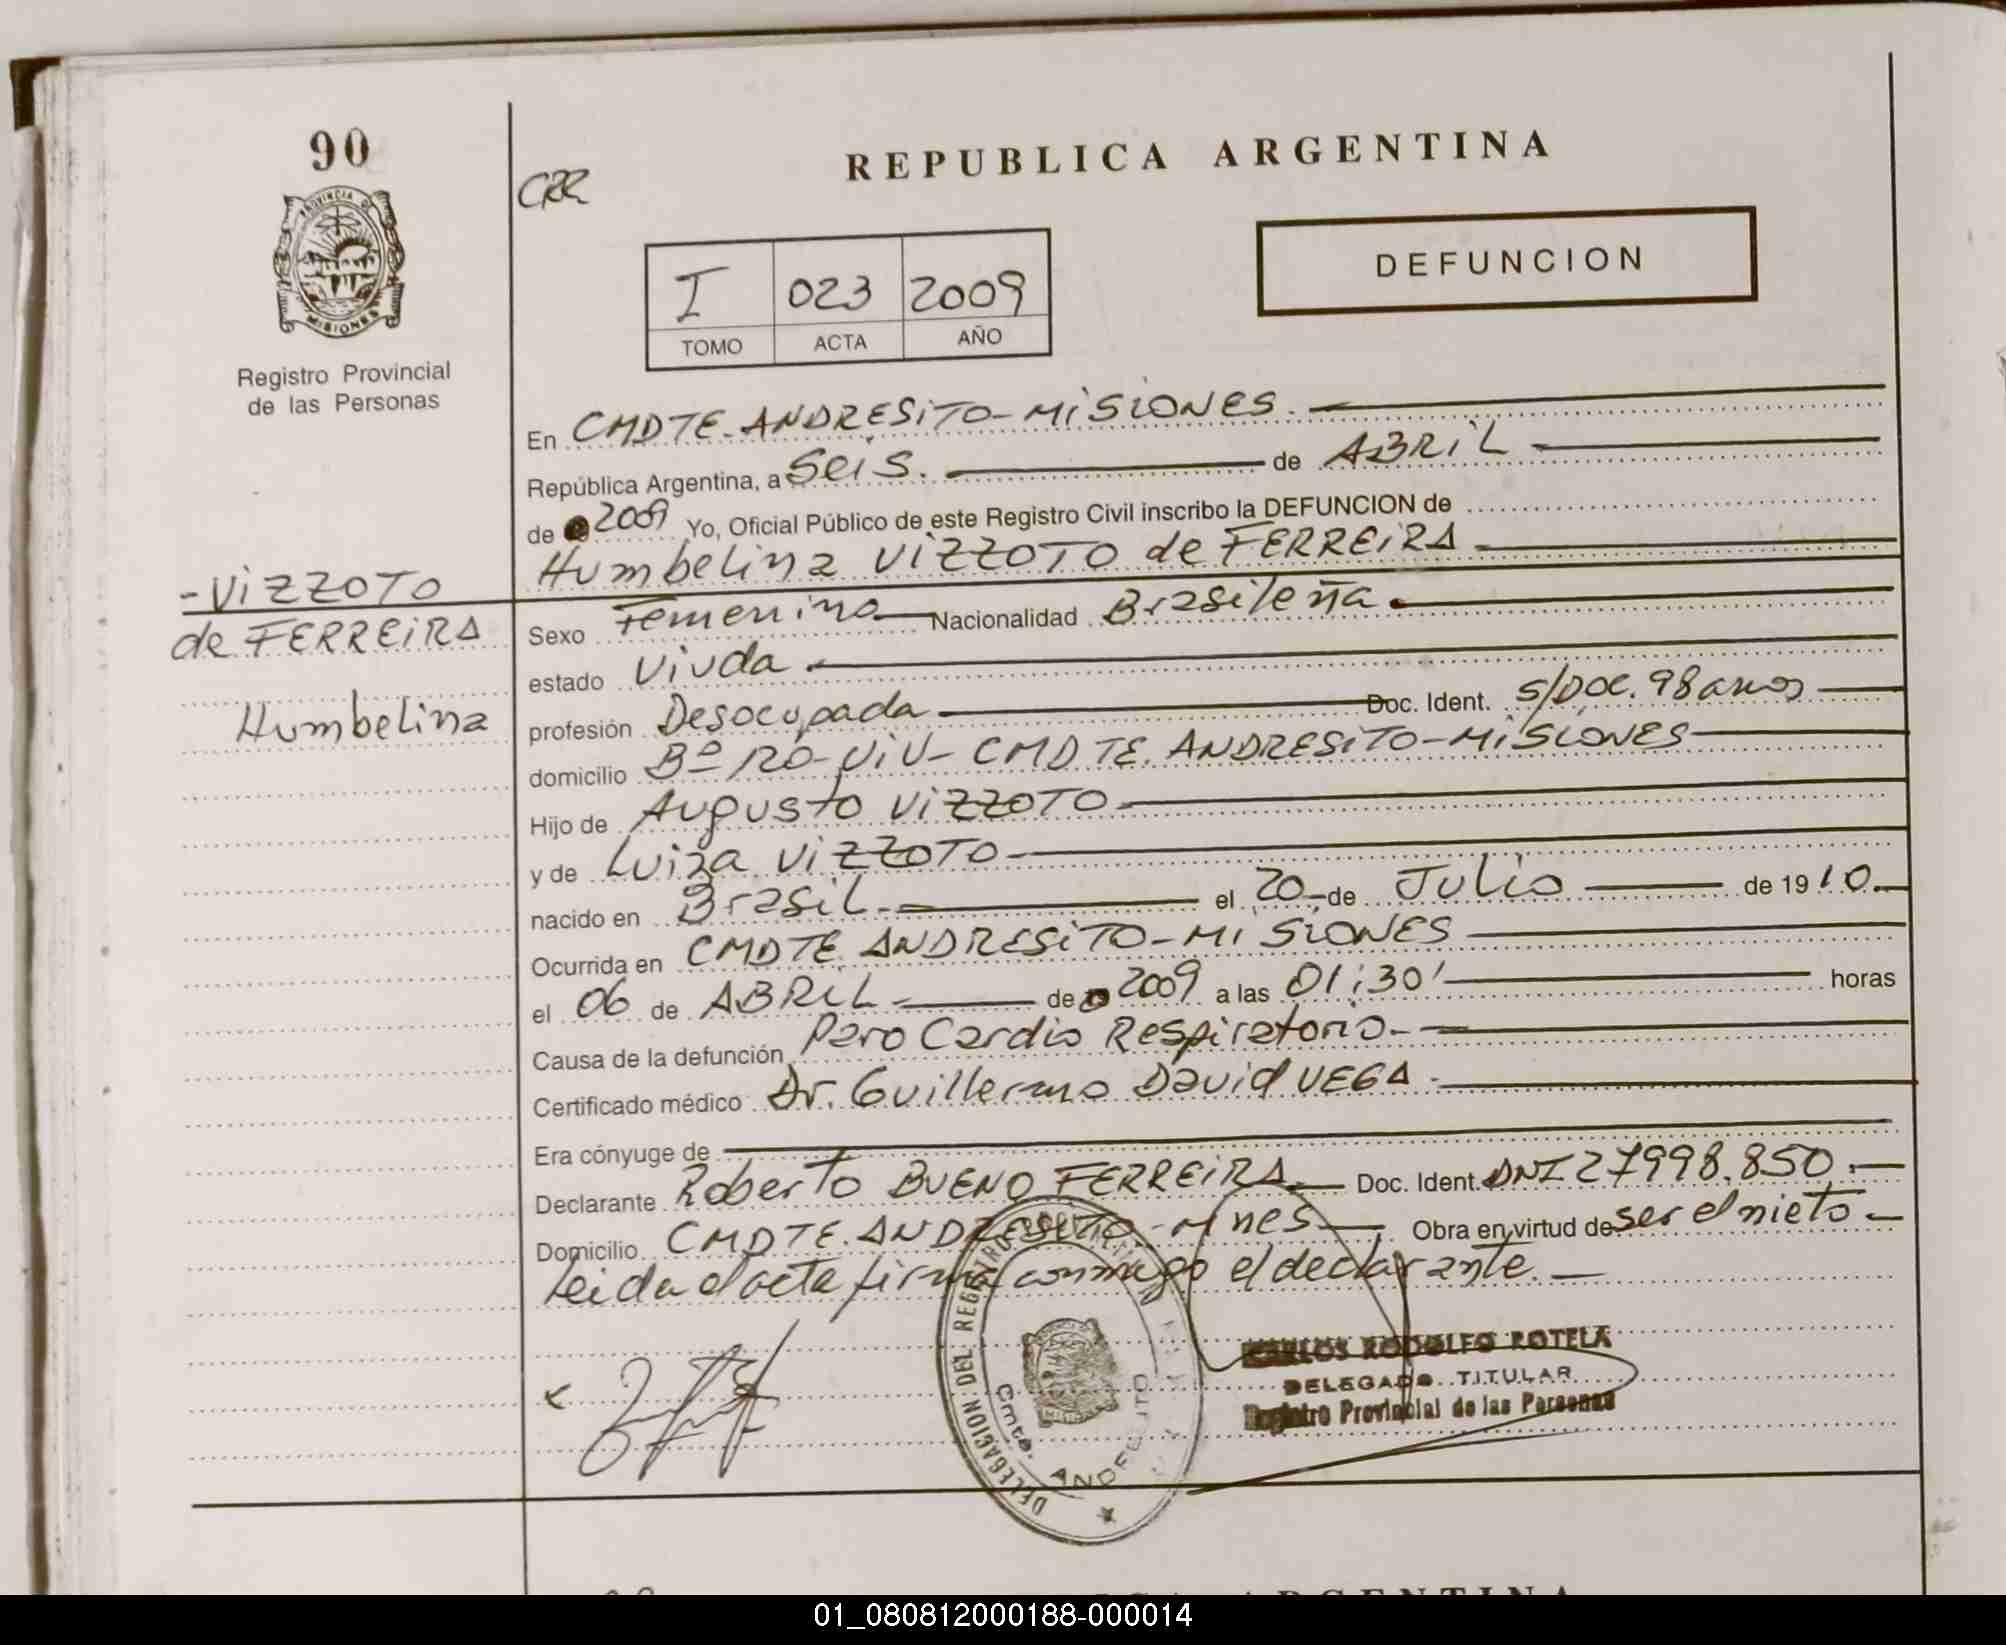 90
PROVINCIA DE
MISIONES
Registro Provincial
de las Personas
CRR
REPUBLICA ARGENTINA
I 023 2009
TOMO ACTA AÑO
DEFUNCION
En CMDTE. ANDRESITO-MISIONES.
República Argentina, a SEIS. de ABRIL
de 2009 Yo, Oficial Público de este Registro Civil inscribo la DEFUNCION de
Humbelina VIZZOTO de FERREIRA
-VIZZOTO
de FERREIRA
Humbelina
Sexo Femenino Nacionalidad Brasileña.
estado Viuda
profesión Desocupada Doc. Ident. S/Doc. 98 anos
domicilio Bº 120-VIV- CMDTE. ANDRESITO-MISIONES
Hijo de Augusto VIZZOTO
y de Luiza VIZZOTO
nacido en Brasil. el 20 de Julio de 1910.
Ocurrida en CMDTE. ANDRESITO-MISIONES
el 06 de ABRIL de 2009 a las 01:30' horas
Causa de la defunción Paro Cardio Respiratorio.
Certificado médico Dr. Guillermo David VEGA.
Era cónyuge de
Declarante Roberto BUENO FERREIRA. Doc. Ident. DNI 27998.850.
Domicilio CMDTE. ANDRESITO-Mnes Obra en virtud de ser el nieto
Leida el acta firma conmigo el declarante.
DELEGACION DEL REGISTRO
Cmte. ANDRESITO
CARLOS RODOLFO ROTELA
DELEGADO TITULAR
Registro Provincial de las Personas
01_080812000188-000014